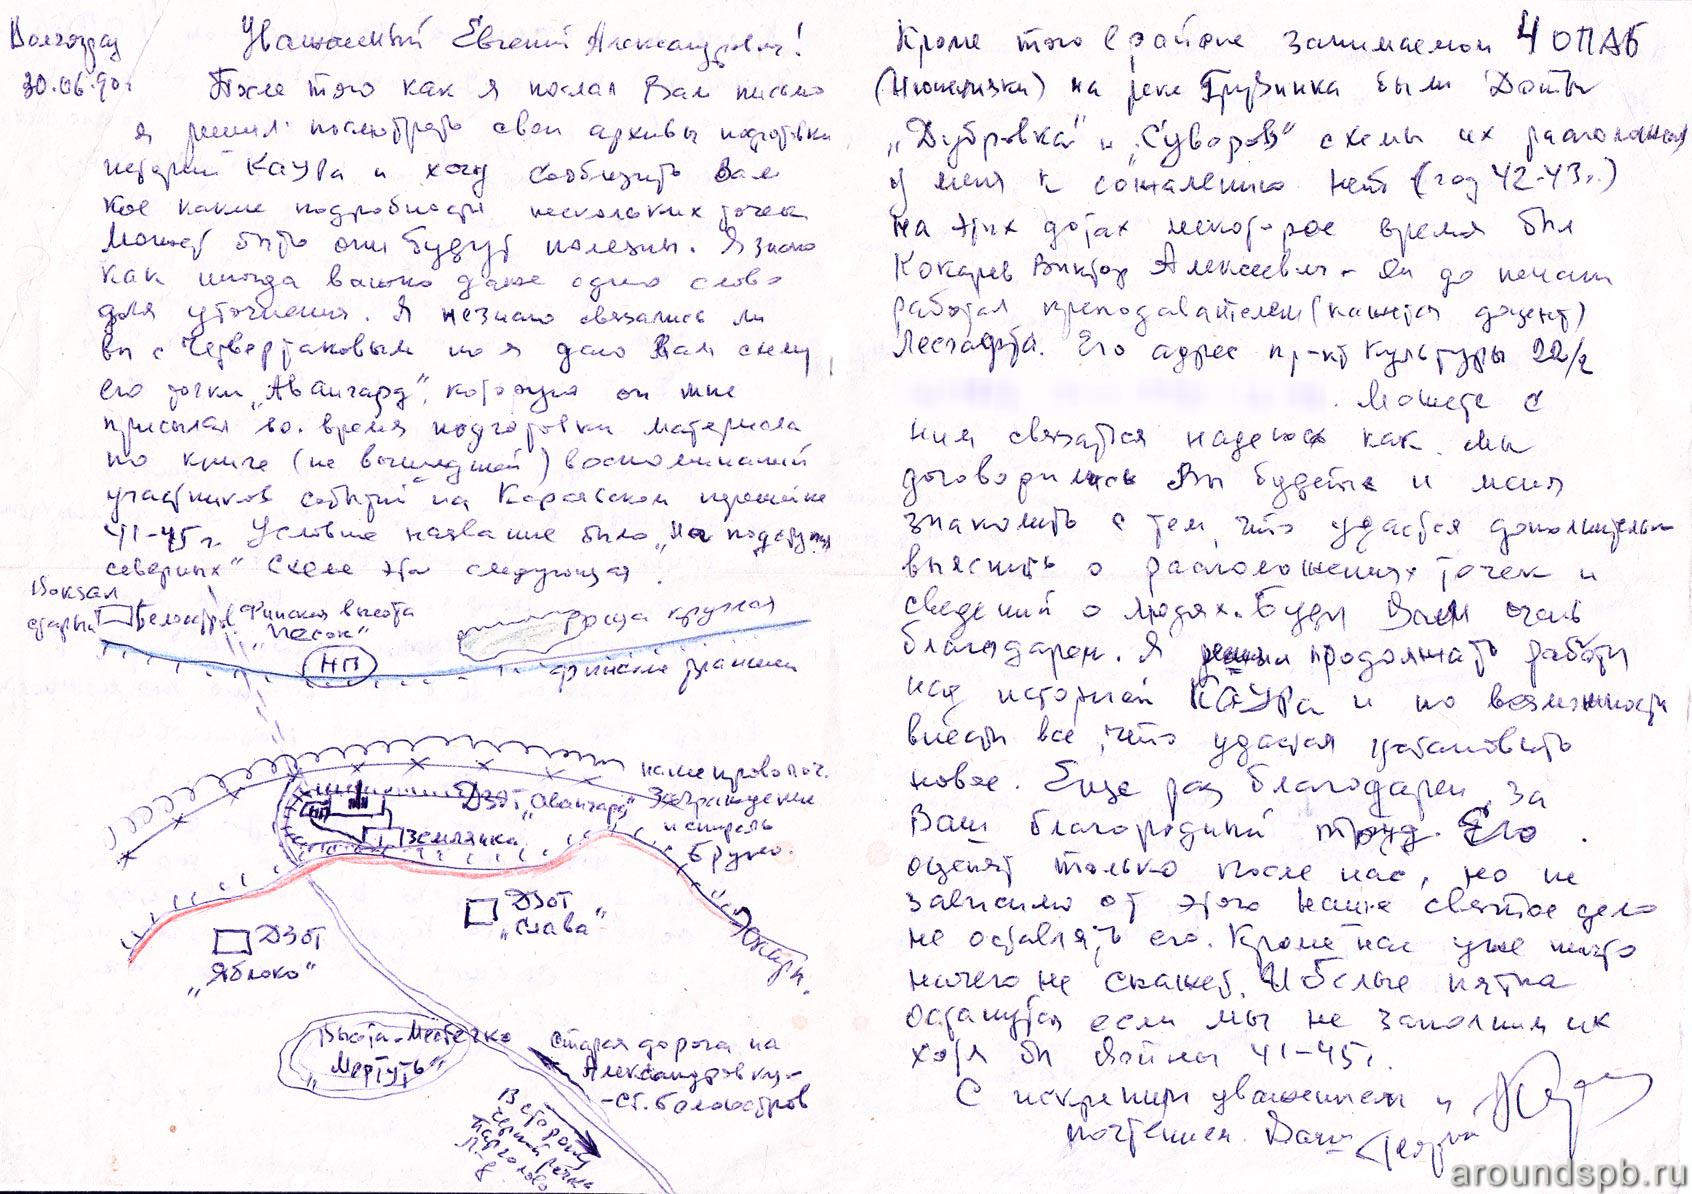 Волгоград
30.06.90г
Уважаемый Евгений Александрович!
После того как я послал Вам письмо
я решил посмотреть свои архивы подготовки
истории КАУРа и хочу сообщить Вам
кое какие подробности нескольких точек
Может быть они будут полезны. Я знаю
как иногда важно даже одно слово
для уточнения. Я незнаю связались ли
вы с Четвертаковым но я даю Вам схему
его точки „Авангард", которую он мне
присылал во время подготовки материала
по книге (не вышедшей) воспоминаний
участников событий на Карельском перешейке
41-45г. Условное название было „На подступах
северных" Схема эта следующая.
Вокзал
старый Белоостров
Финская высота
"Песок"
НП
Роща круглая
финские траншеи
наше проволоч.
заграждение
и спираль
Бруно.
ДЗОТ „Авангард"
НП
Землянка
ДЗОТ
„Слава"
ДЗОТ
„Яблоко"
Высота-Местечко
„Мертуть"
Старая дорога на
Александровку-
-ст. Белоостров
В сторону
Черной речки
Парголово
Л-д
Кроме того в районе занимаемом 4 ОПАБ
на реке Грузинка были Доты
„Дубровка" и „Суворов" схемы их расположения
у меня к сожалению нет (год 42-43г.)
На этих дотах некоторое время был
Кокарев Виктор Алексеевич - он до пенсии
работал преподавателем (кажется доцент)
Лесгафта. Его адрес пр-кт Культуры 22/2
. Можете с
ним связаться надеюсь как мы
договорились Вы будете и меня
знакомить с тем, что удастся дополнительно
выяснить о расположениях точек и
сведений о людях. Буду Вам очень
благодарен. Я решил продолжать работу
над историей КАУРа и по возможности
внести все, что удастся установить
новое. Еще раз благодарен за
Ваш благородный труд. Его
оценят только после нас, но не
зависимо от этого наше святое дело
не оставлять его. Кроме нас уже никто
ничего не скажет. И белые пятна
останутся если мы не заполним их
хотя бы Войны 41-45г.
С искренним уважением и
почтением Ваш Георгий
aroundspb.ru